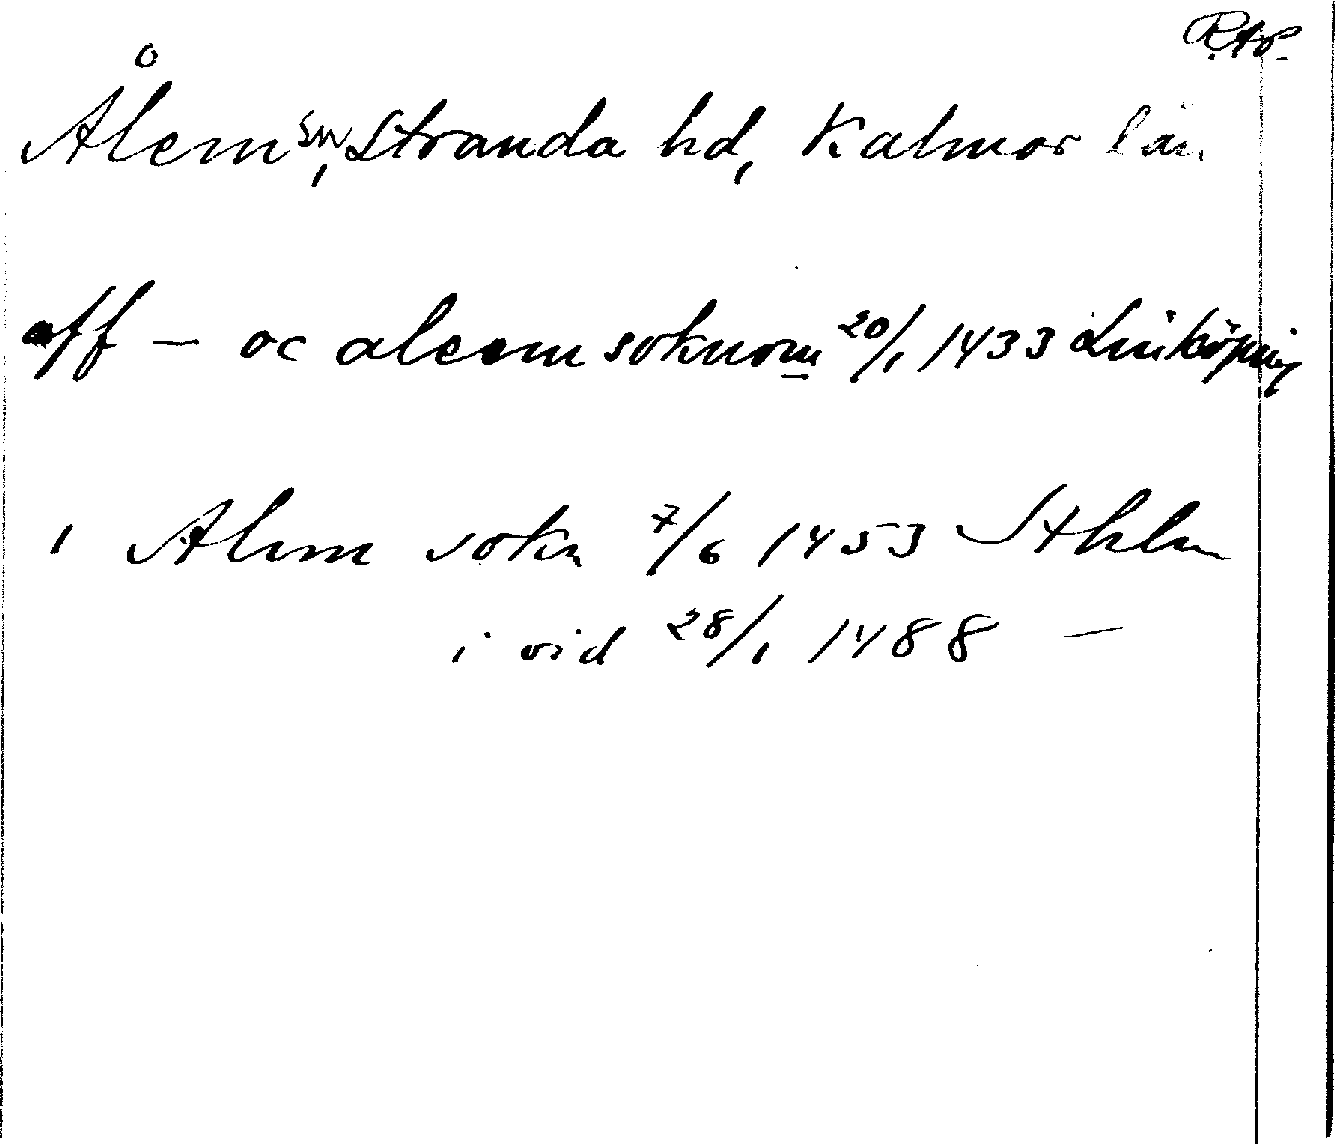 RAP.
Ålem sn, Stranda hd, Kalmar län
aff - oc aleem soknom 20/1 1433 Linköping
i Alem sokn 7/6 1453 Sthlm
i vid 28/1 1488 -